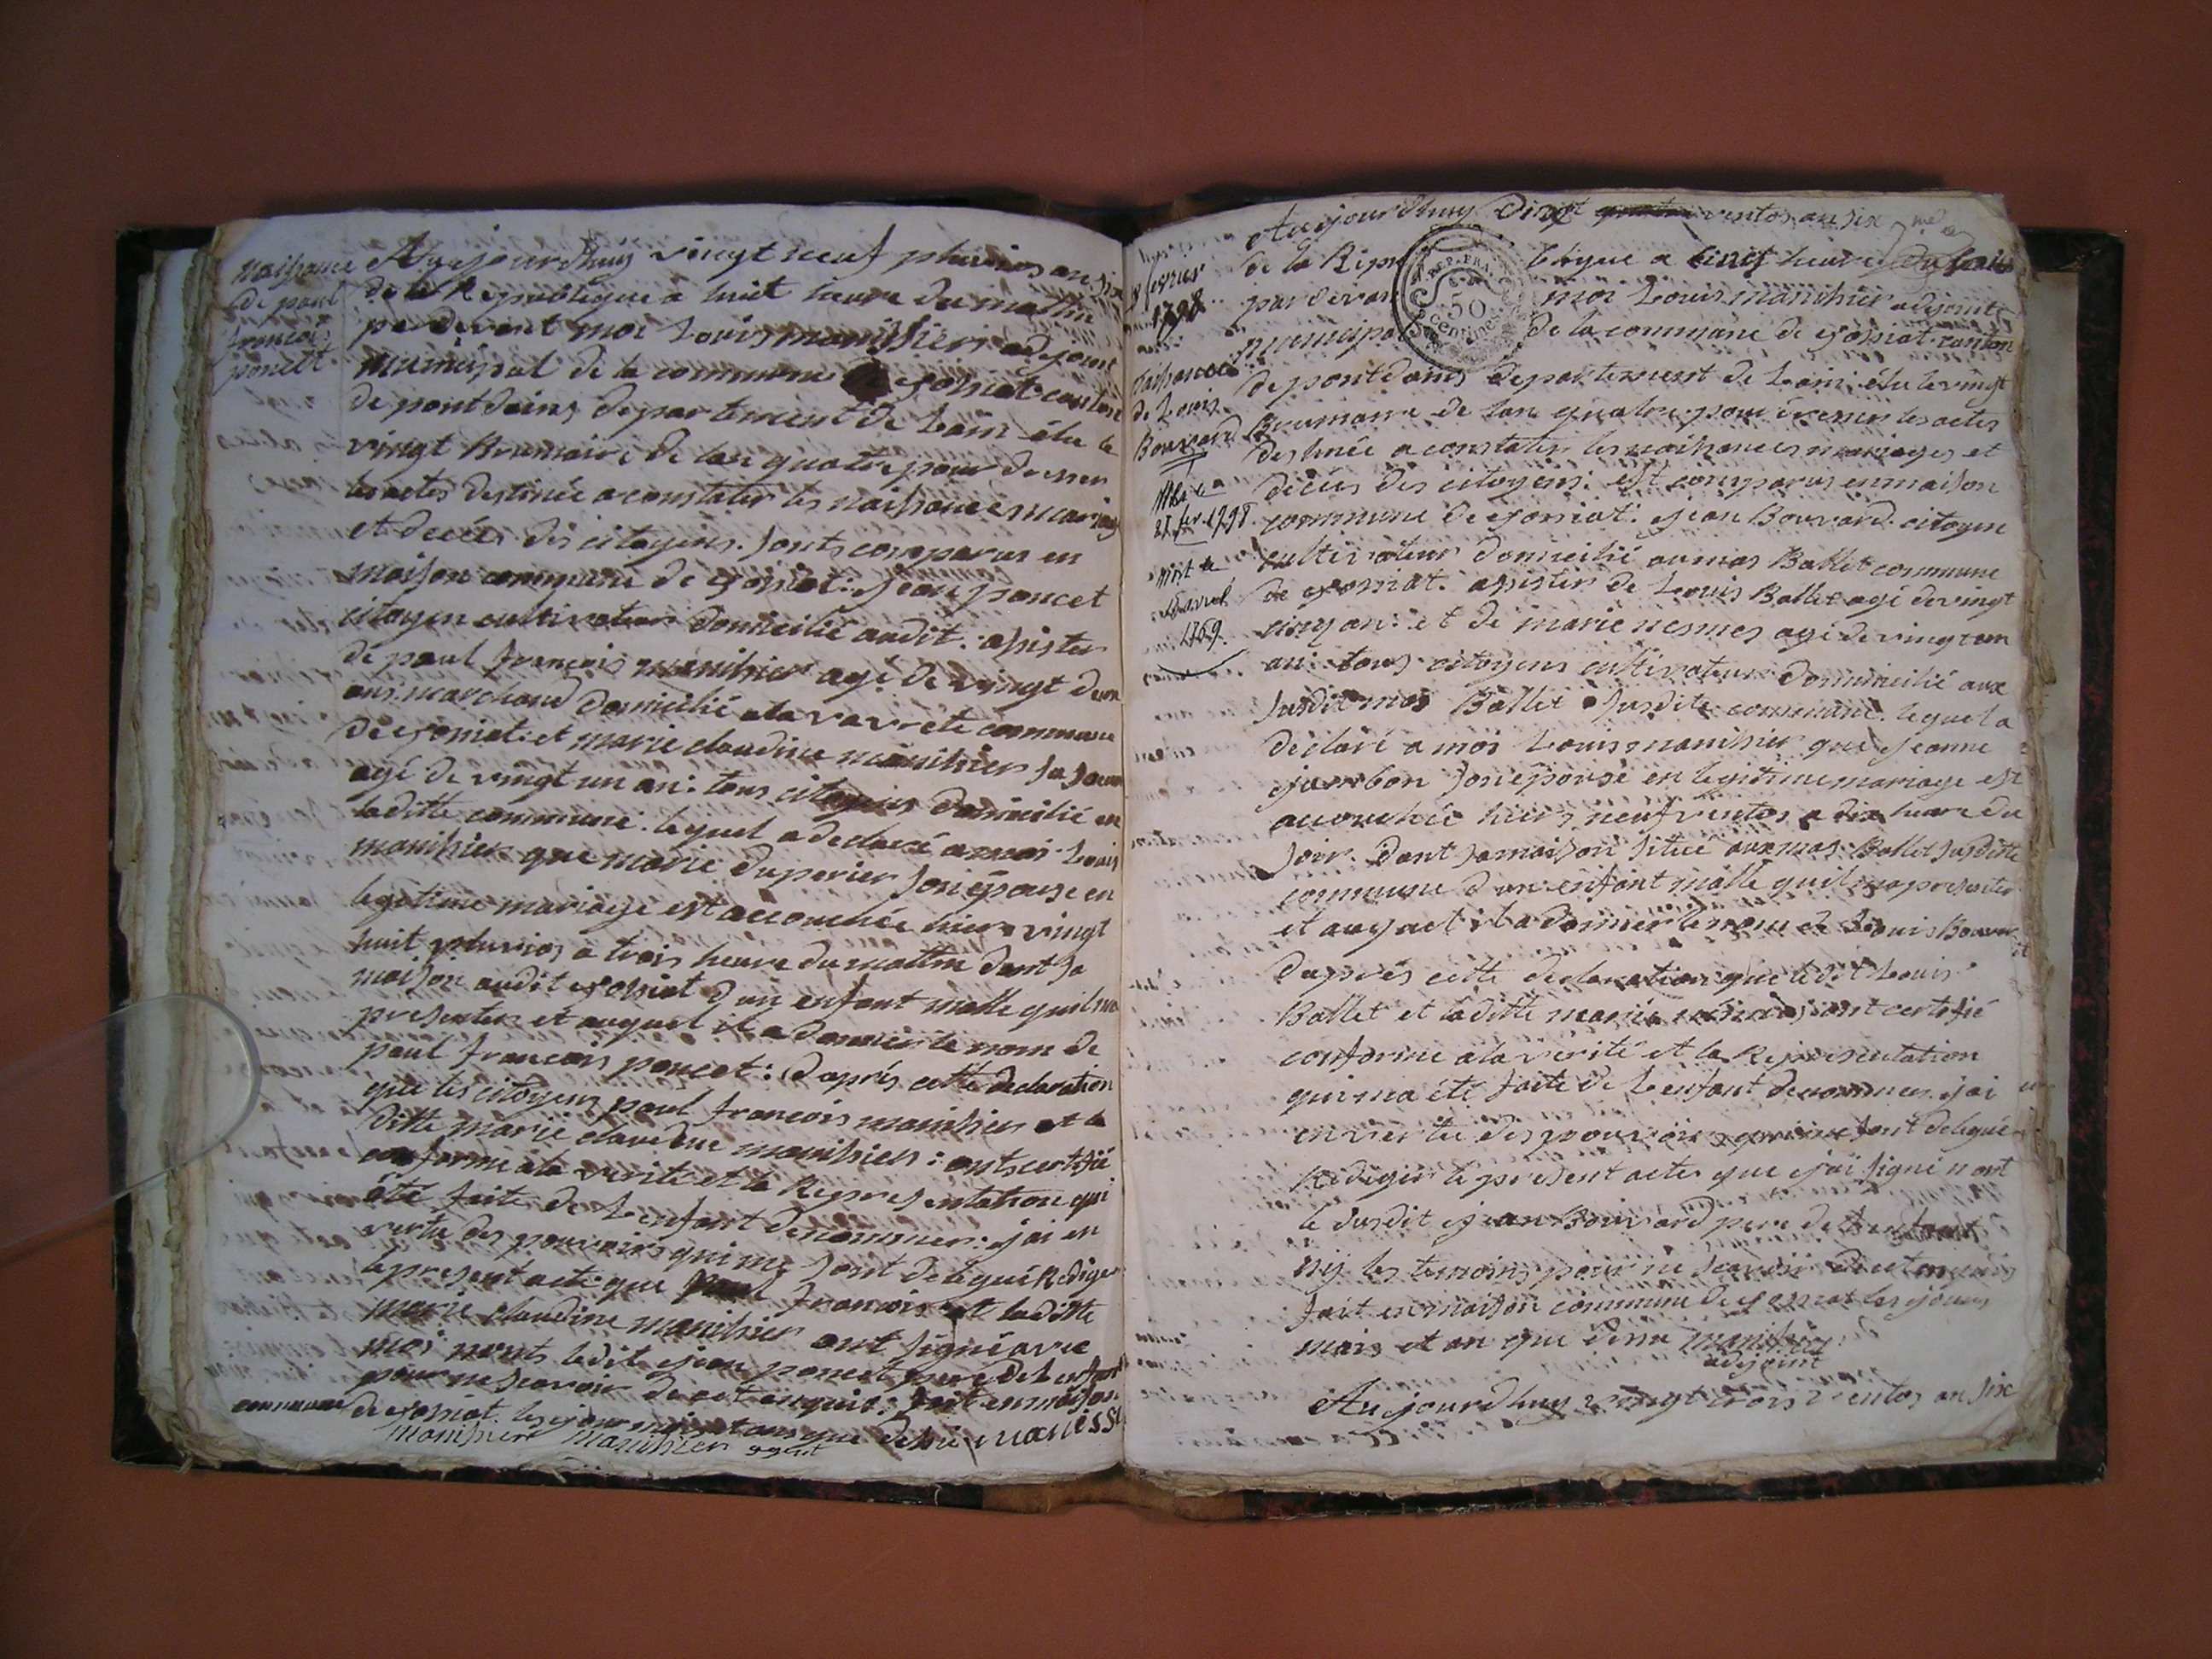 naissance
de paul
francois
poncet
Aujourdhuy vingt neuf pluvios an six
de la Republique a huit heure du mattin
pardevant moi Louis manissier adjoint
municipal de la commune de josnat canton
de pont dains departement de Lain élu le
vingt Brumaire de lan quatre pour dresser
les actes destinée a constater les naissances mariages
et decés des citoyens. sonts comparus en
maison commune de josnat: jean poncet
citoyen cultivateur domicilié audit: assister
de paul francois manissier agé de vingt deux
ans marchand domicilié a la vavrete commune
de josnat: et marie claudine manissier sa soeur
agé de vingt un an: tous citoyens domicilié en
laditte commune. lequel a declaré a moi Louis
manissier que marie duperier son épouse en
legitime mariage est accouchée hiers vingt
huit pluvios a trois heure du mattin dant sa
maison audit josnat d'un enfant malle quil ma
presenter et auquel il a donner le nom de
paul francois poncet: d'aprés cette declaration
que les citoyens paul francois manissier et la
ditte marie claudine manissier: onts certifié
conforme a la verité et la Representation qui
été faite de Lenfant denommer: jai en
vertu des pouvoirs qui me sont delegué Rediger
le present acte que paul francois et laditte
marie claudine manissier ont signé avec
moi nonts ledit jean poncet pere de Lenfant
pour ne scavoir de ce enquit: fait en maison
commune de josnat les jour mois et ans que dessu maniss
manissier manissier agent
8 fevrier
1798
naissance
de Louis
Bouvard
Né le
27 fev. 1798.
Mort le
avril
1859
Aujourdhuy Dix ventos an six me
de la Repu blique a cinq heure du soir
par devan moi Louis manissier adjoint
municipa de la commune de josnat canton
de pont dains departement de Lain élu le vingt
Brumaire de lan quatre pour dresser les actes
destinée a constater les naissances mariages et
décés des citoyens: est comparus en maison
commune de josnat: jean Bouvard citoyen
cultivateur domicilié au mas Ballet commune
de josnat. assister de Louis Ballet agé de vingt
cinq an: et de marie nesmes agé de vingt un
an: tous citoyens cultivateur domicilié aux
susdit mas Ballet susdite commune. lequel a
déclaré a moi Louis manissier que jeanne
jambon son épouse en legitime mariage est
accouchée hiers neuf ventos a dix heure du
soir. dant sa maison située aux mas Ballet susditte
commune d'un enfant malle quil ma presenter
et auquel il a donner le nom de Louis Bouvar
d'aprés cette declaration que ledit Louis
Ballet et laditte marie nesmes ont certifié
conforme a la vérité et la Representation
qui ma été faite de Lenfant denommer jai
en vertu des pouvoirs qui me sont delegué
Rediger le present actes que jai signé nont
le susdit jean Bouvard pere de Lenfant
nij les temoins pour ne scavoir de ce enquis
fait en maison commune de josnat les jour
mois et an que dessu manissier
adjoint
Aujourdhuy vingt trois ventos an six
REP. FRA.
50
centimes